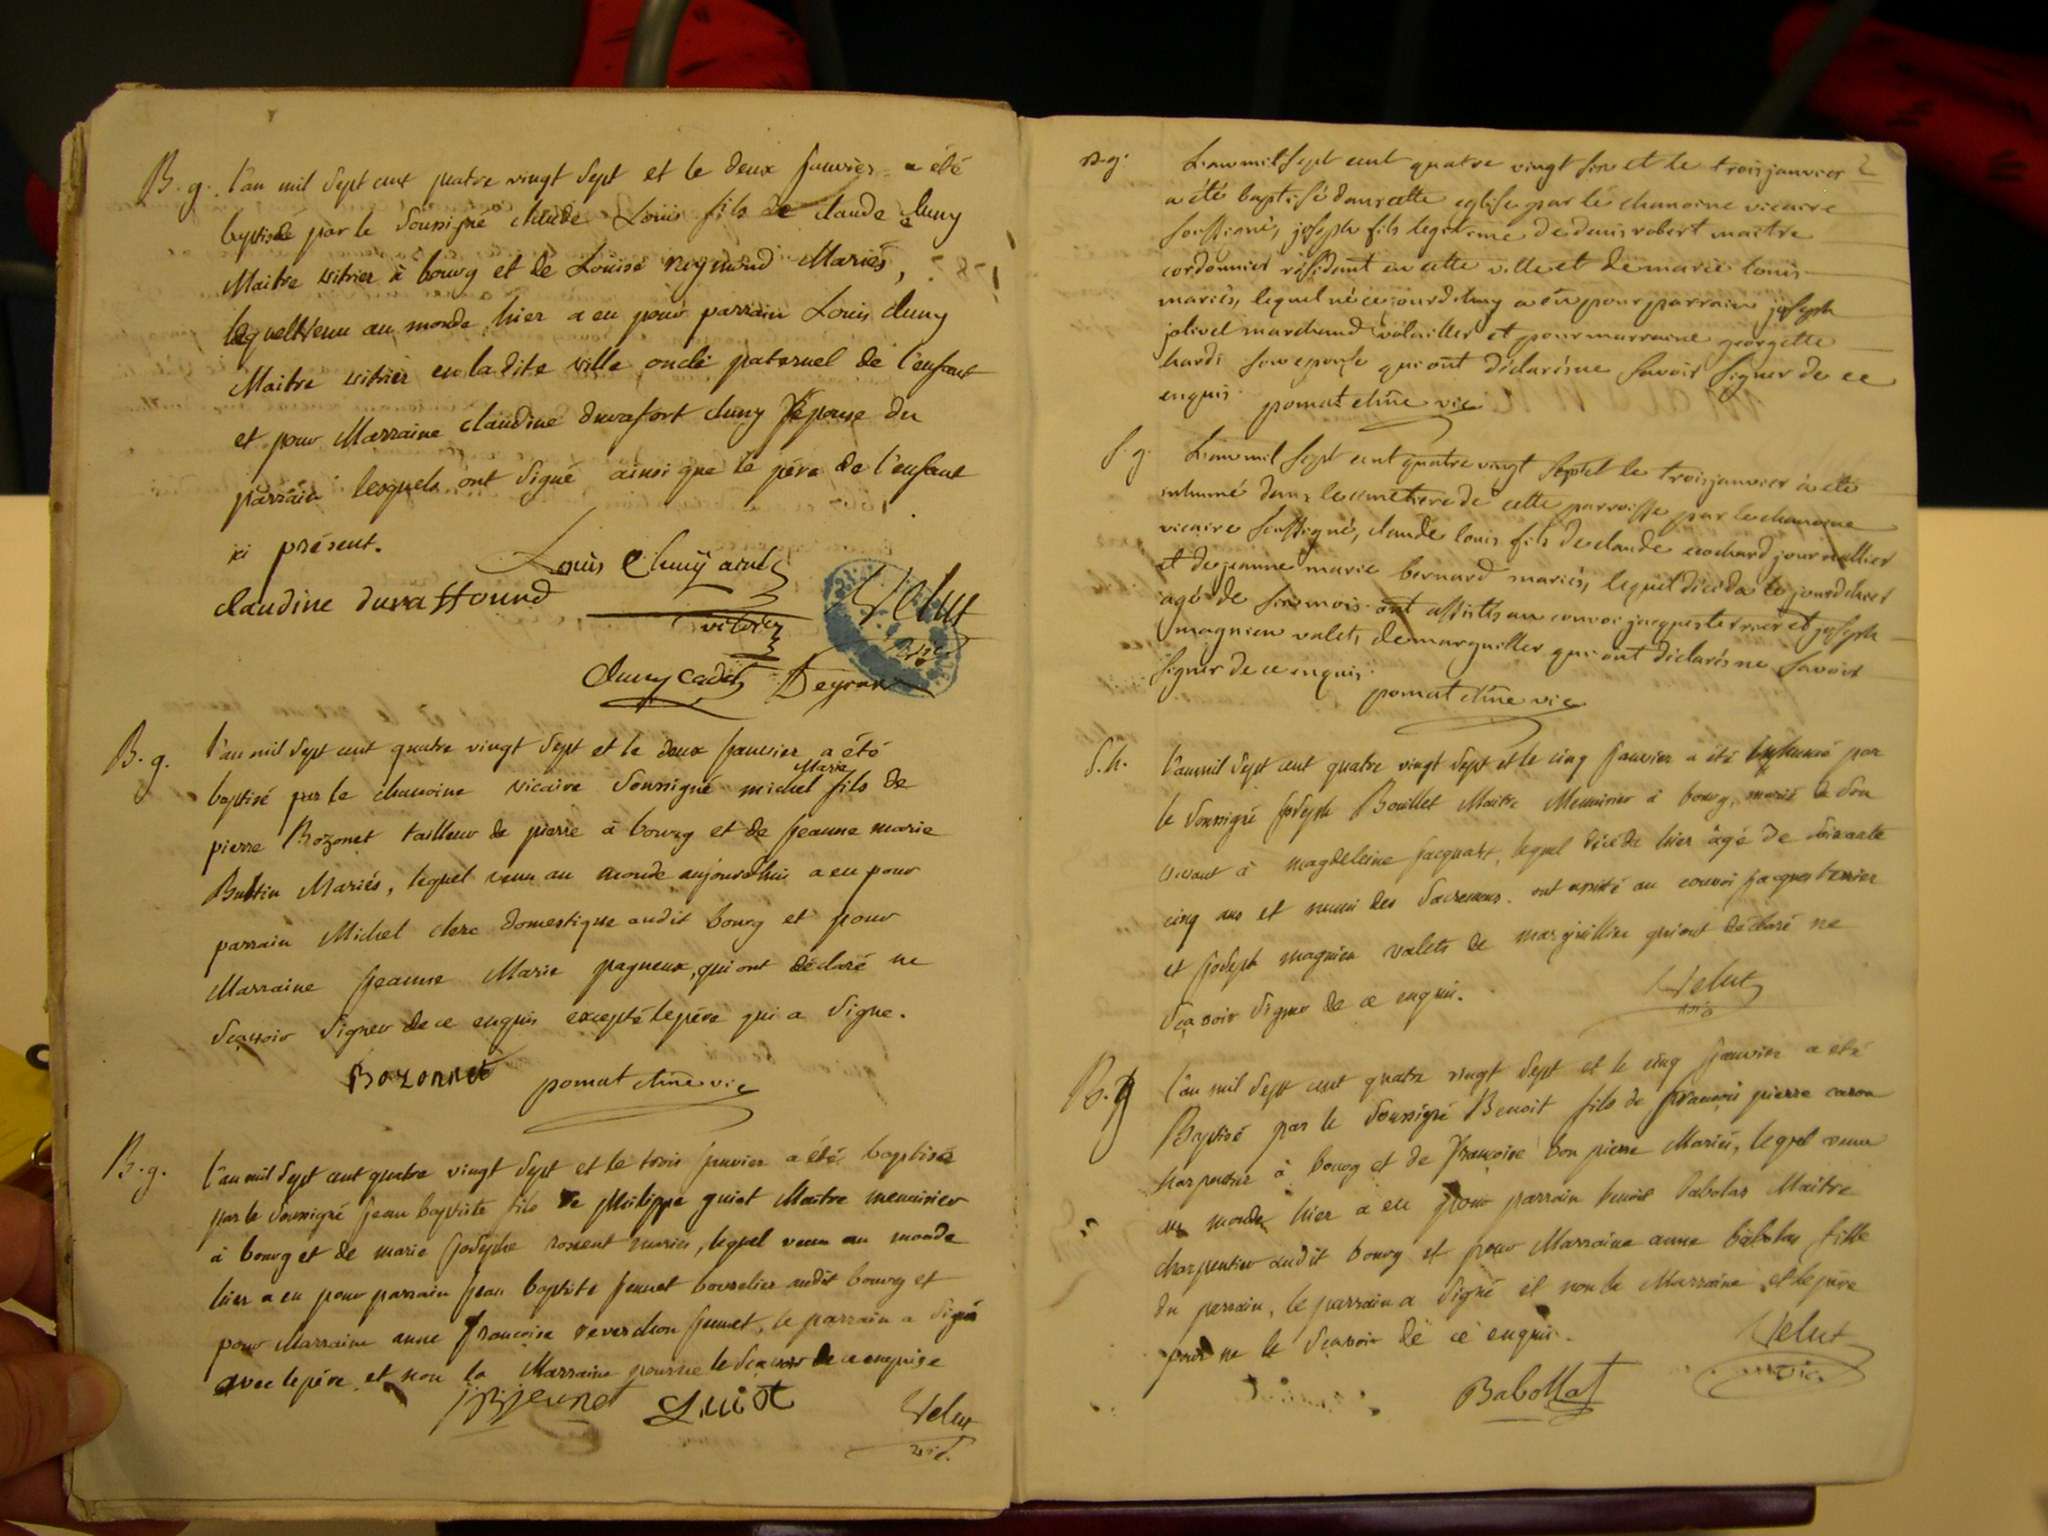 B. g. l'an mil sept cent quatre vingt sept et le deux janvier a été
baptisé par le soussigné claude Louis fils de claude cluny
Maitre vitrier à bourg et de Louise reymond Mariés,
lequel venu au monde hier a eu pour parrain Louis cluny
Maitre vitrier en la dite ville oncle paternel de l'enfant
et pour Marraine claudine durafort cluny épouse du
parrain lesquels ont signé ainsi que le père de l'enfant
ici présent.
Louis Cluny ainé
claudine duraffound
vitrier
Velut
vic
cluny cadet
B. g. l'an mil sept cent quatre vingt sept et le deux janvier a été
baptisé par le chanoine vicaire soussigné michel Marie fils de
pierre Bozonet tailleur de pierre à bourg et de jeanne marie
Buttin Mariés, lequel venu au monde aujourdhui a eu pour
parrain Michel clerc domestique audit bourg et pour
Marraine jeanne Marie pagneux, qui ont déclaré ne
sçavoir signer de ce enquis excepté le père qui a signe.
Bozonnet pomat chne vic
B. g. l'an mil sept cent quatre vingt sept et le trois janvier a été baptisé
par le soussigné jean baptiste fils de philippe guiot Maitre menuisier
à bourg et de marie josephe mariés, lequel venu au monde
hier a eu pour parrain jean baptiste jeunet bourselier audit bourg et
pour Marraine anne françoise reverchon jeunet, le parrain a signé
avec le père et non la Marraine pour ne le sçavoir de ce enquise
jBjeunet Guiot Velut
vic.
2
B. g. L'an mil sept cent quatre vingt sept et le trois janvier
a été baptisé dans cette eglise par le chanoine vicaire
soussigné, joseph fils legitime de denis robert maitre
cordonnier résidant en cette ville et de marie louis
mariés, lequel né ce jourdhuy a eu pour parrain joseph
jolivet marchand volailler et pour marraine georgette
hardi son epouse qui ont déclarés ne savoir signer de ce
enquis. pomat chne vic
S. g. L'an mil sept cent quatre vingt sept et le trois janvier a été
inhumé dans le cimetiere de cette parroisse par le chanoine
vicaire soussigné, claude louis fils de claude cochard journallier
et de jeanne marie bernard mariés, lequel décéda le jour d'hier
agé de six mois ont assistés au convoi jacques terrier et joseph
magnien valets de marguiller qui ont déclarés ne savoir
signer de ce enquis.
pomat chne vic
S. h. l'an mil sept cent quatre vingt sept et le cinq janvier a été inhumé par
le soussigné joseph Bouillet Maitre Menuisier à bourg, marié de son
vivant à magdeleine jacquart, lequel décéda hier âgé de soixante
cinq ans et muni des sacremens. ont assisté au convoi jacques terrier
et joseph magnien valets de marguillier qui ont déclaré ne
sçavoir signer de ce enquis.
Velut
vic
B. g l'an mil sept cent quatre vingt sept et le cinq janvier a été
Baptisé par le soussigné Benoit fils de françois pierre caron
charpentier à bourg et de françoise bon pierre Mariés, lequel venu
au monde hier a eu pour parrain benoit babolas Maitre
charpentier audit bourg et pour Marraine anne babolas fille
du parrain, le parrain a signé et non la Marraine et le père
pour ne le sçavoir de ce enquis.
Velut
vic.
Babollat